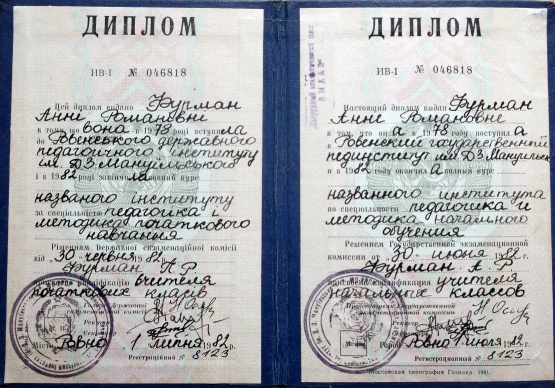 ДИПЛОМ
ИВ-I № 046818
Цей диплом видано Фурман
Анні Романівні
в тому, що вона в 1978 вступила
до Ровенського державного
педагогічного інституту
ім. Д.З. Мануїльського
і в 1982 закінчила повний курс
названого інституту
за спеціальністю педагогіка і
методика початкового
навчання
Рішенням Державної екзаменаційної комісії
від 30 червня 1982
Фурман А.Р.
кваліфікацію вчителя
початкових класів
Ректор
Секретар
Місто Ровно 1 липня 1982 р.
Реєстраційний № 8123
ДИПЛОМ
ИВ-I № 046818
Настоящий диплом выдан Фурман
Анне Романовне
в том, что она в 1978 поступила
в Ровенский государственный
пединститут им. Д.З. Мануильск
и в 1982 окончила полный курс
названного института
по специальности педагогика и
методика начального
обучения
Решением Государственной экзаменационной
комиссии от 30 июня 1982
Фурман А.Р.
квалификация учителя
начальных классов
Председатель Государственной
экзаменационной комиссии
Ректор
Секретарь
Город Ровно 1 июля 1982
Регистрационный № 8123
Московская типография Гознака. 1981.